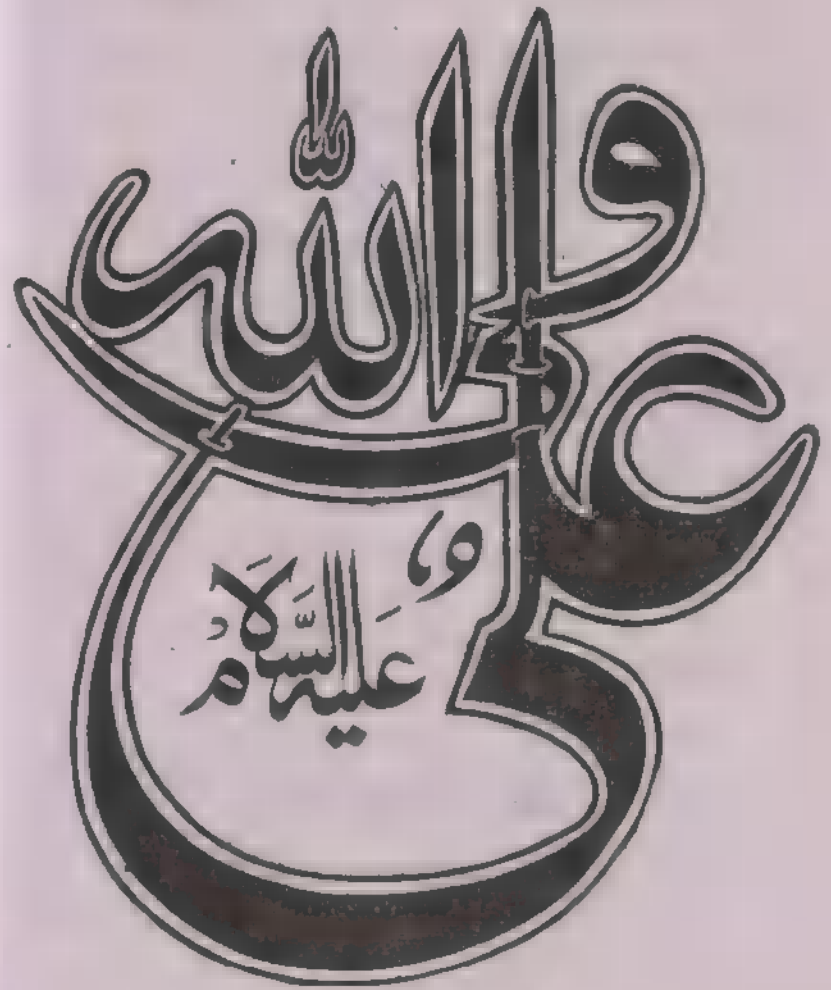 على ولى الله
عَليه السَّلَام